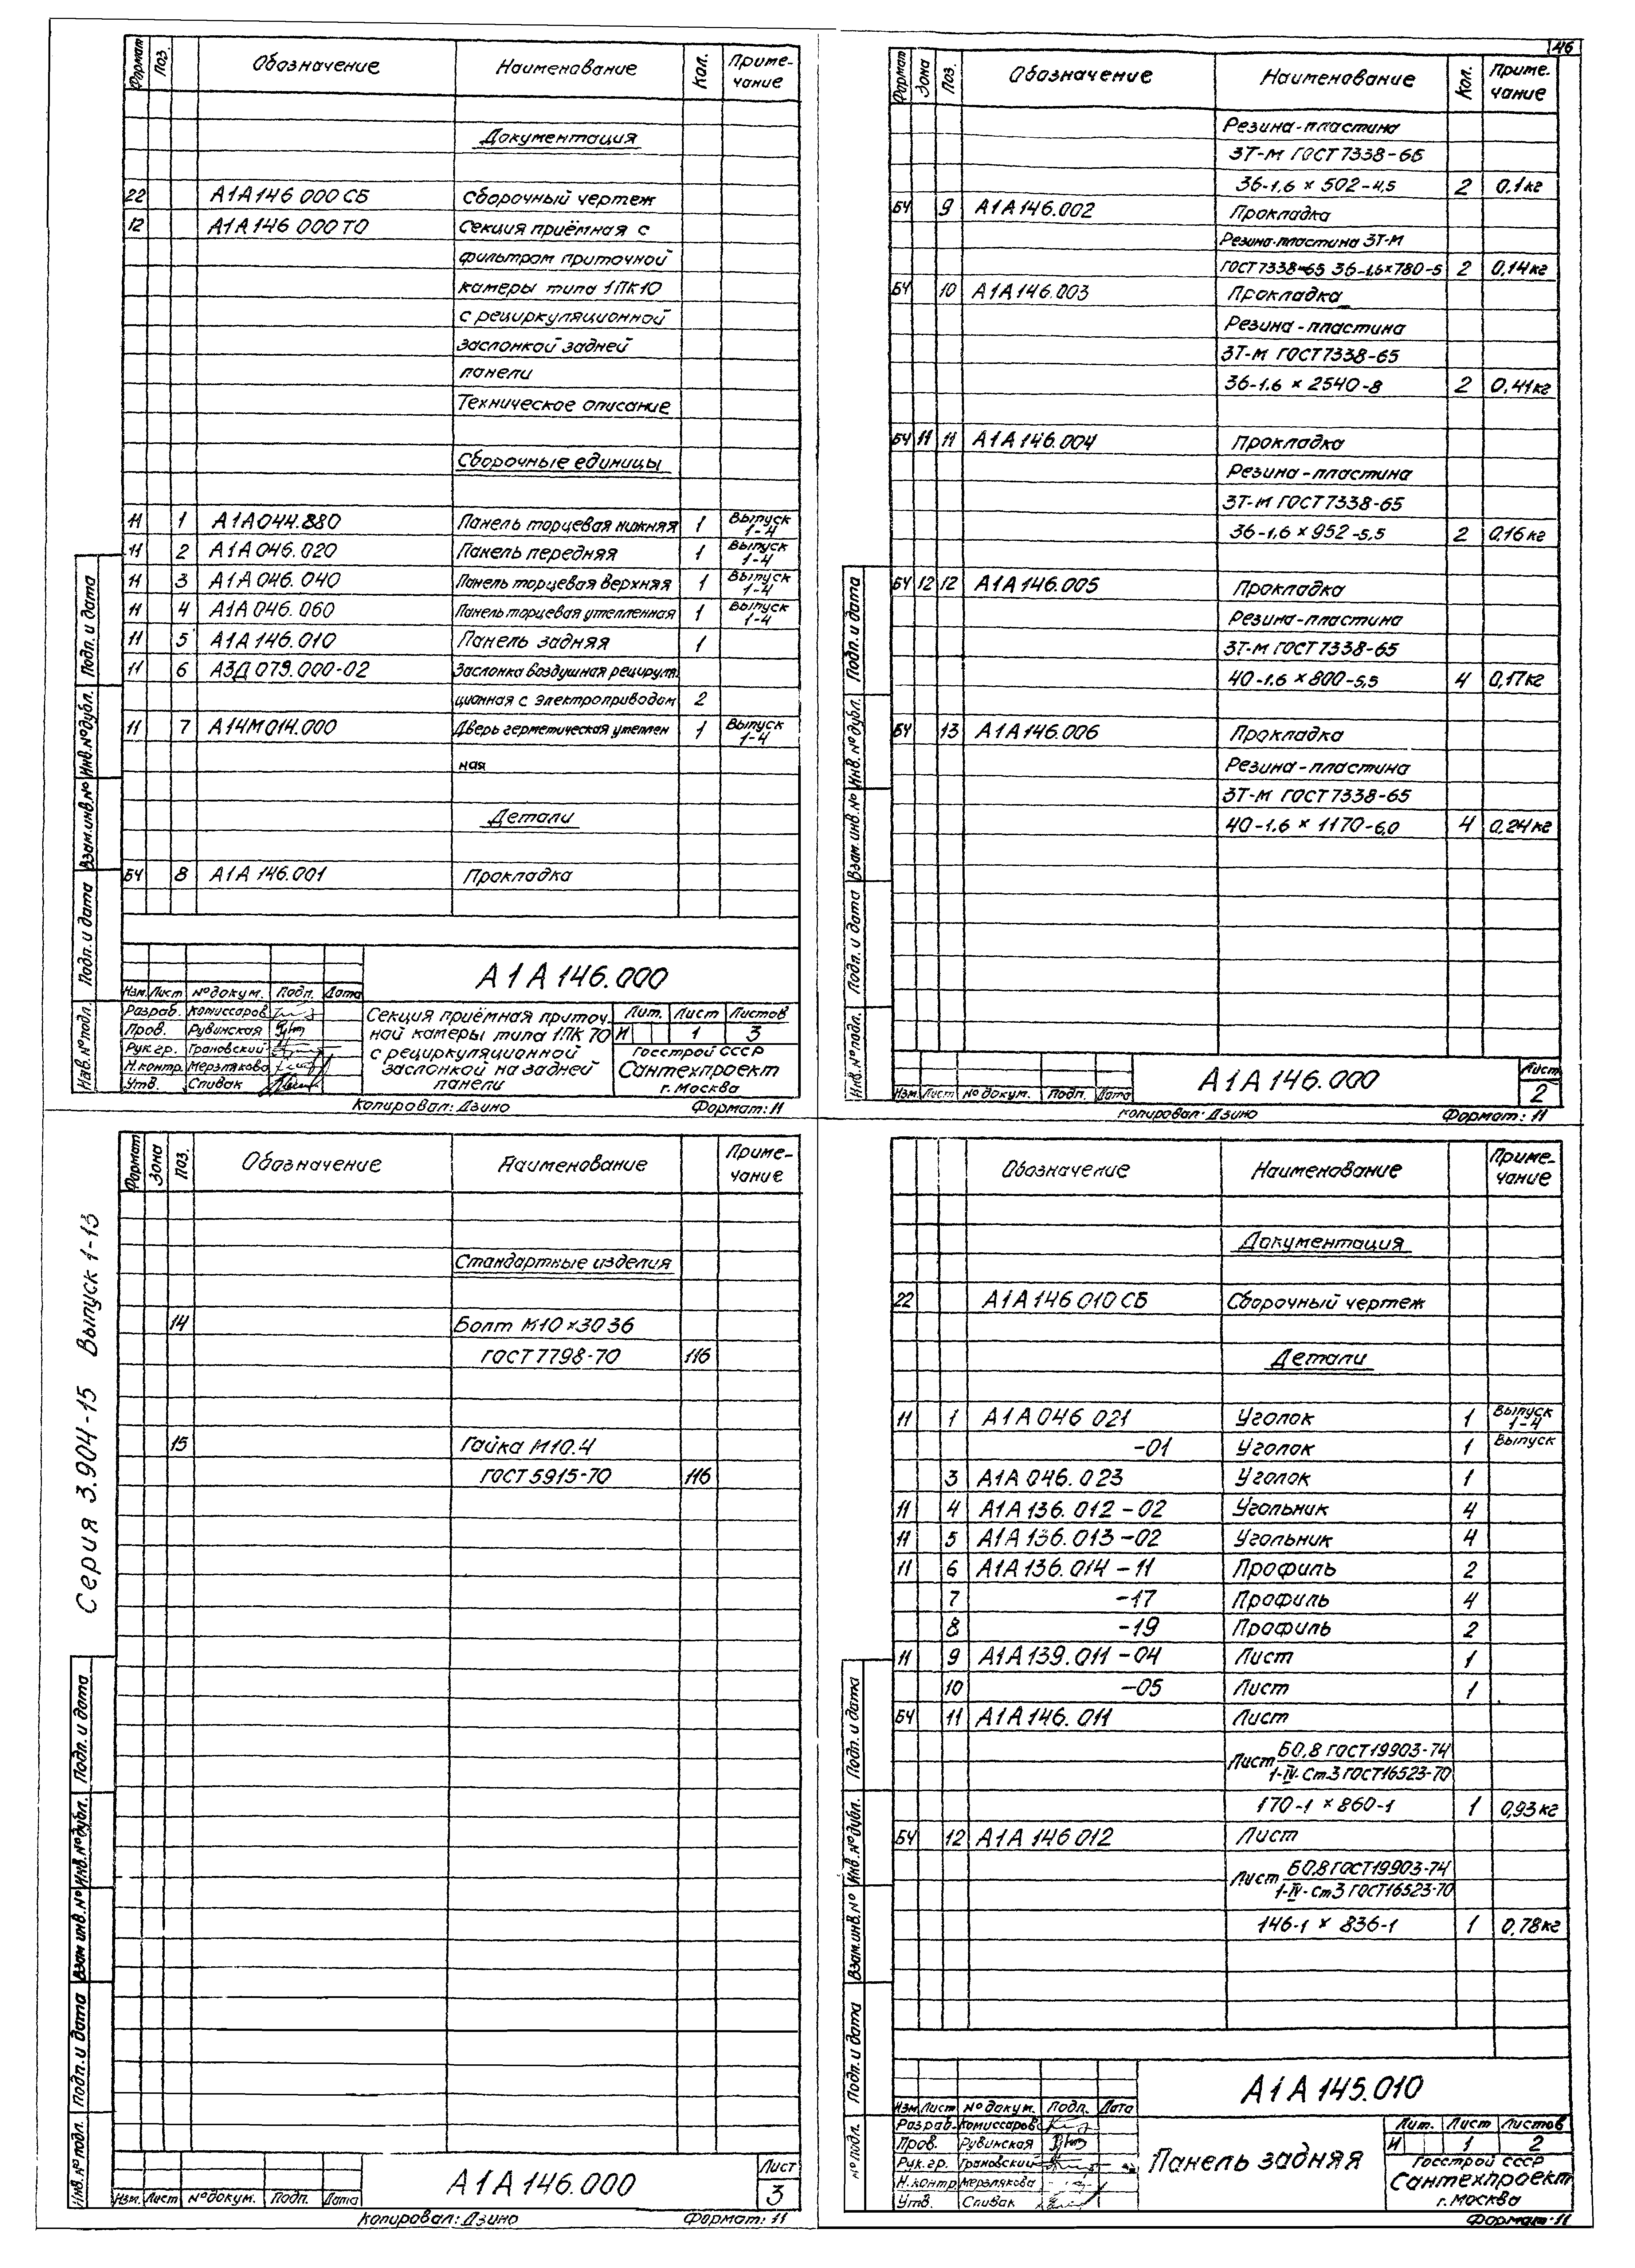 Формат Поз. Обозначение Наименование Кол. Приме-
чание
Документация
22 А1А146 000 СБ Сборочный чертеж
12 А1А146 000 ТО Секция приёмная с
фильтром приточной
камеры типа 1ПК10
с рециркуляционной
заслонкой задней
панели
Техническое описание
Сборочные единицы
11 1 А1А044.880 Панель торцевая нижняя 1 Выпуск
1-4
11 2 А1А046.020 Панель передняя 1 Выпуск
1-4
11 3 А1А046.040 Панель торцевая верхняя 1 Выпуск
1-4
11 4 А1А046.060 Панель торцевая утепленная 1 Выпуск
1-4
11 5 А1А146.010 Панель задняя 1
11 6 А3Д079.000-02 Заслонка воздушная
ционная с электроприводом 2
11 7 А14М014.000 Дверь герметическая утеплен 1 Выпуск
1-4
ная
Детали
БЧ 8 А1А146.001 Прокладка
А1А146.000
Изм. Лист № докум. Подп. Дата
Разраб. Комиссаров
Пров. Рувинская
Рук.гр. Грановский
Н.контр. Мерзлякова
Утв. Спивак
Секция приёмная приточ.
ной камеры типа 1ПК 70
с рециркуляционной
заслонкой на задней
панели
Лит. Лист Листов
И 1 3
Госстрой СССР
Сантехпроект
г. Москва
Копировал: Дзино Формат: 11
Инв.№подл. Подп. и дата Взам.инв.№ Инв.№дубл. Подп. и дата
46
Формат Зона Поз. Обозначение Наименование Кол. Приме-
чание
Резина-пластина
3Т-М ГОСТ 7338-65
36-1,6 × 502-4,5 2 0,1кг
БЧ 9 А1А146.002 Прокладка
Резина-пластина 3Т-М
ГОСТ 7338-65 36-1,6×780-5 2 0,14кг
БЧ 10 А1А146.003 Прокладка
Резина-пластина
3Т-М ГОСТ 7338-65
36-1,6 × 2540-8 2 0,41кг
БЧ 11 11 А1А146.004 Прокладка
Резина-пластина
3Т-М ГОСТ 7338-65
36-1,6 × 952-5,5 2 0,16кг
БЧ 12 12 А1А146.005 Прокладка
Резина-пластина
3Т-М ГОСТ 7338-65
40-1,6 × 800-5,5 4 0,17кг
БЧ 13 А1А146.006 Прокладка
Резина-пластина
3Т-М ГОСТ 7338-65
40-1,6 × 1170-6,0 4 0,24кг
Изм. Лист № докум. Подп. Дата
А1А146.000
Лист
2
Копировал: Дзино Формат: 11
Инв.№подл. Подп. и дата Взам.инв.№ Инв.№дубл. Подп. и дата
Серия 3.904-15 Выпуск 1-13
Формат Зона Поз. Обозначение Наименование Приме-
чание
Стандартные изделия
14 Болт М10×30 36
ГОСТ 7798-70 116
15 Гайка М10.4
ГОСТ 5915-70 116
Изм. Лист № докум. Подп. Дата
А1А146.000
Лист
3
Копировал: Дзино Формат: 11
Инв.№подл. Подп. и дата Взам инв.№ Инв.№дубл. Подп. и дата
Обозначение Наименование Приме-
чание
Документация
22 А1А146 010 СБ Сборочный чертеж
Детали
11 1 А1А046 021 Уголок 1 Выпуск
1-4
-01 Уголок 1 Выпуск
3 А1А046.023 Уголок 1
11 4 А1А136.012-02 Угольник 4
11 5 А1А136.013-02 Угольник 4
11 6 А1А136.014-11 Профиль 2
7 -17 Профиль 4
8 -19 Профиль 2
11 9 А1А139.011-04 Лист 1
10 -05 Лист 1
БЧ 11 А1А146.011 Лист
Лист Б0,8 ГОСТ19903-74
1-IV-Ст.3 ГОСТ16523-70
170-1 × 860-1 1 0,93кг
БЧ 12 А1А146 012 Лист
Лист Б0,8 ГОСТ19903-74
1-IV-Ст3 ГОСТ16523-70
146-1 × 836-1 1 0,78кг
А1А145.010
Изм. Лист № докум. Подп. Дата
Разраб. Комиссаров
Пров. Рувинская
Рук.гр. Грановский
Н.контр Мерзлякова
Утв. Спивак
Панель задняя
Лит. Лист Листов
И 1 2
Госстрой СССР
Сантехпроект
г. Москва
Формат 11
№подл. Подп. и дата Взам.инв.№ Инв.№дубл. Подп. и дата